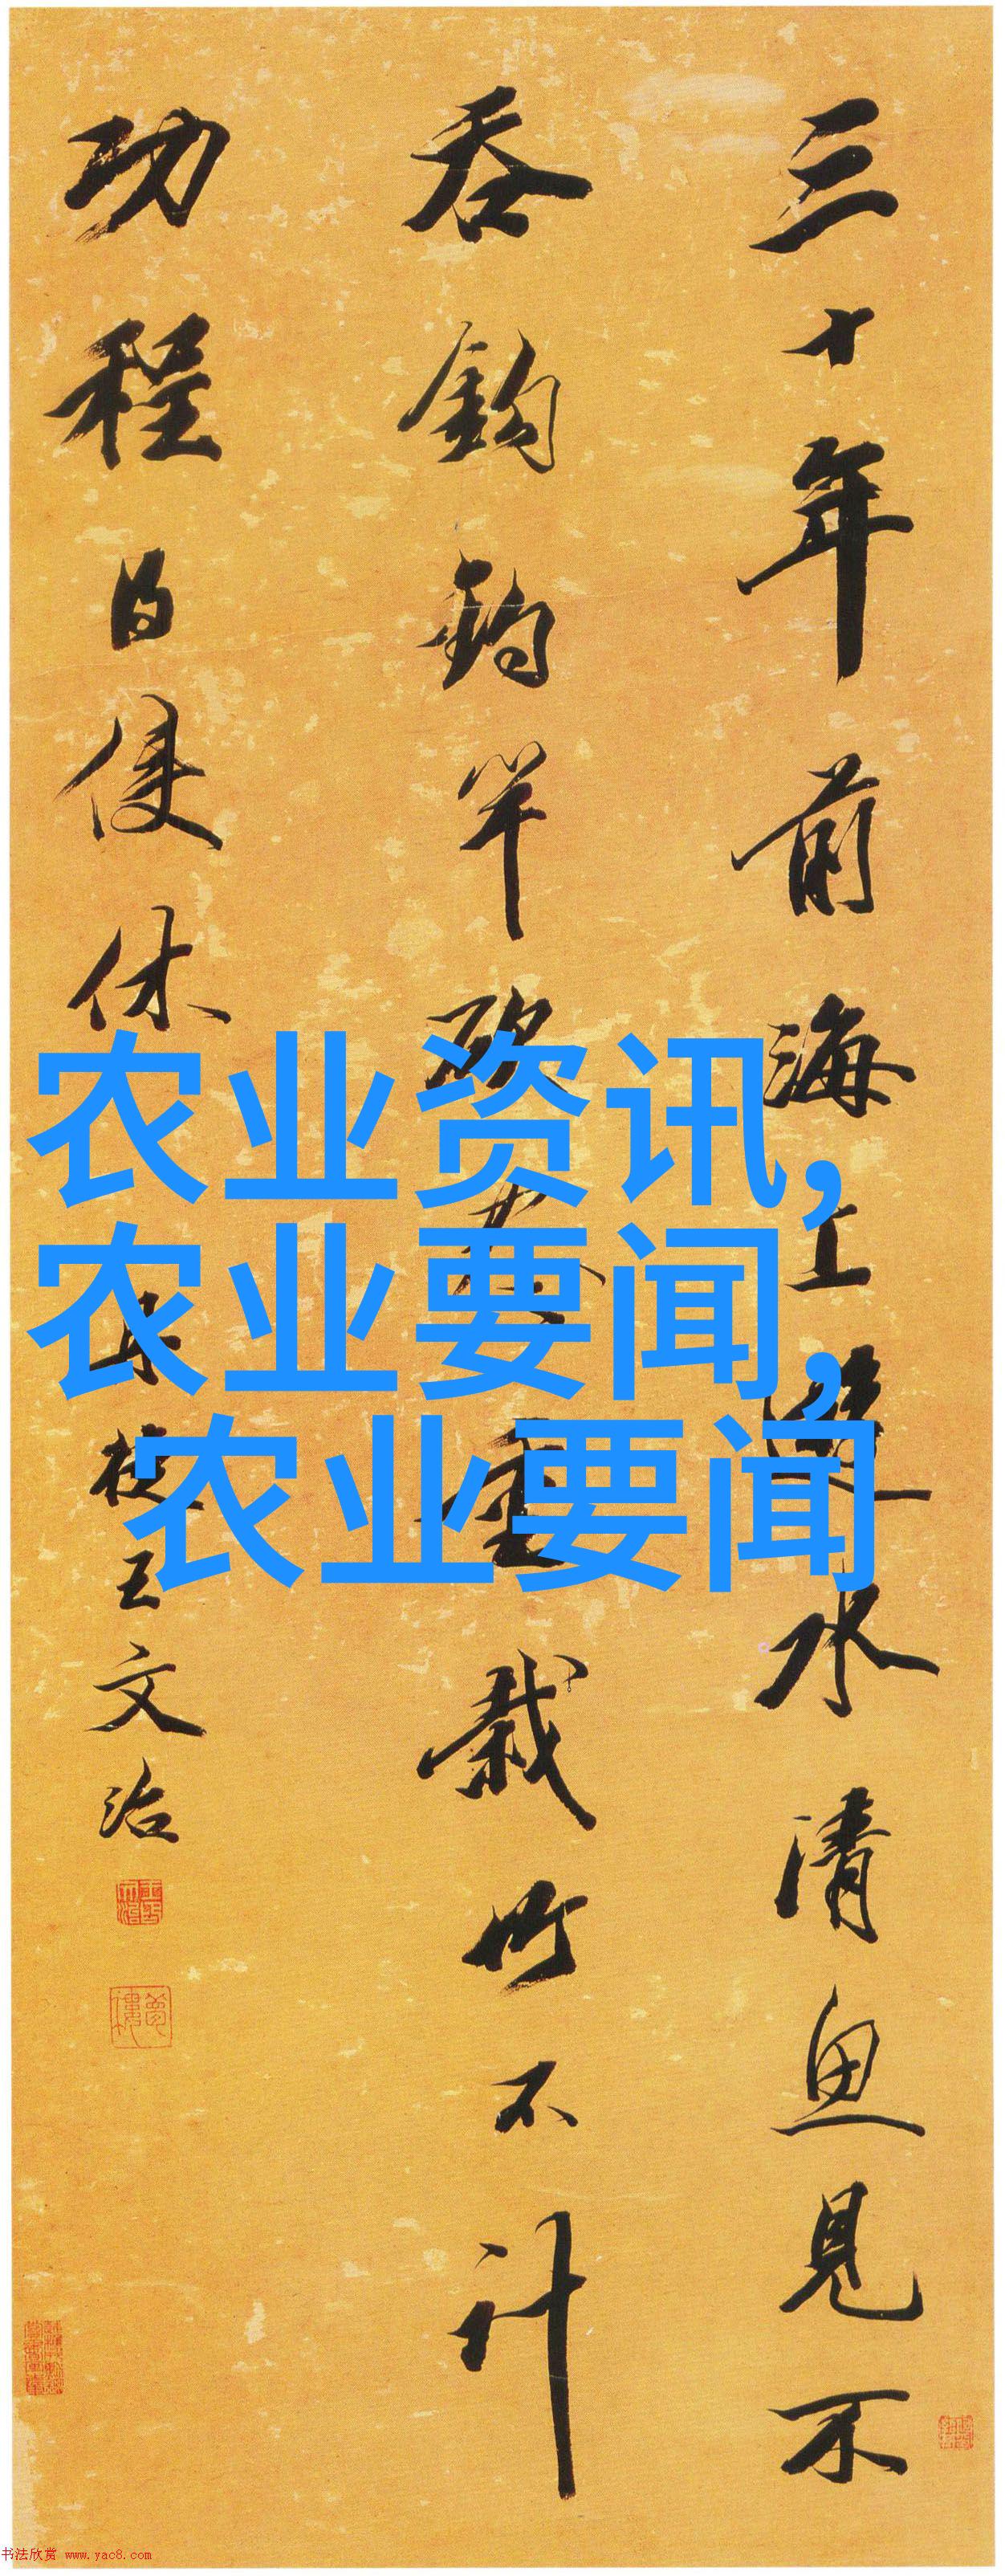 三十年前海上遊水清魚見不
吞鉤釣竿斫重栽竹不計
功程得便休
樓王文治
农业资讯,
农业要闻,
农业要闻
书法欣赏 www.yac8.com